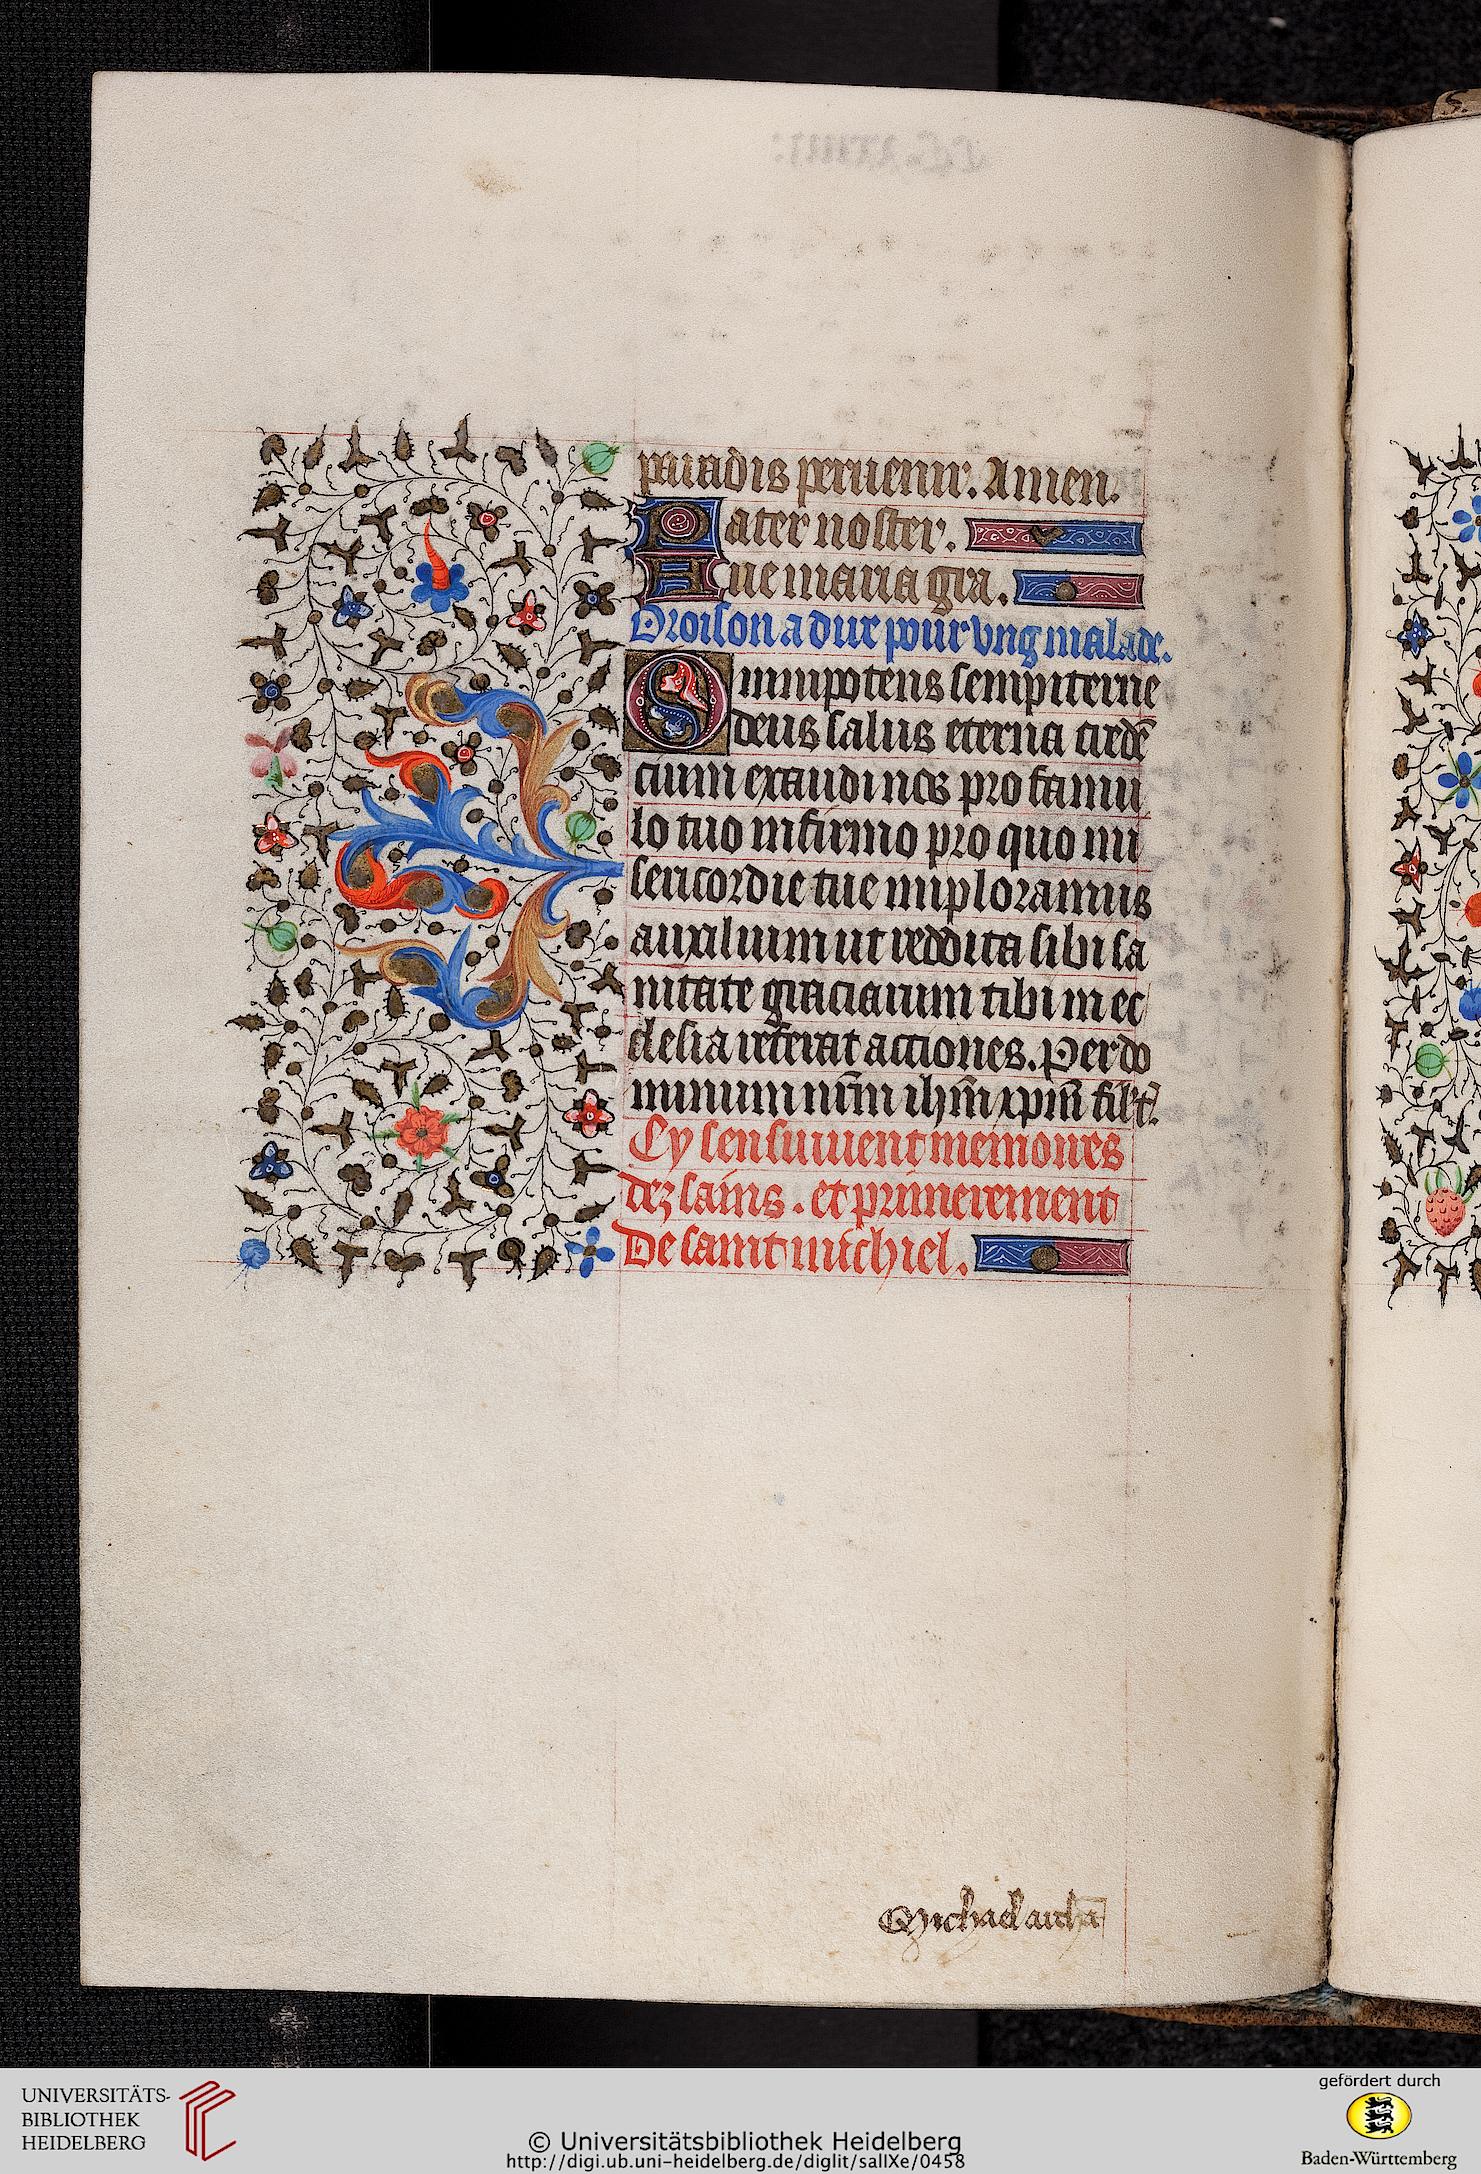 paradis peruenir. Amen.
Pater noster.
Aue maria gra.
Oroison a dire pour vng malade.
Omnipotens sempiterne
deus salus eterna credē
cium exaudi nos pro famu
lo tuo infirmo pro quo mi
sericordie tue imploramus
auxilium ut reddita sibi sa
nitate graciarum tibi in ec
clesia referat actiones. Per do
minum nr̄m ihm̄ xpm̄ fil
Cy sensuiuent memoires
dez sains. et primerement
De saint michiel.
Michael archā
UNIVERSITÄTS-
BIBLIOTHEK
HEIDELBERG
© Universitätsbibliothek Heidelberg
http://digi.ub.uni-heidelberg.de/diglit/sallXe/0458
gefördert durch
Baden-Württemberg